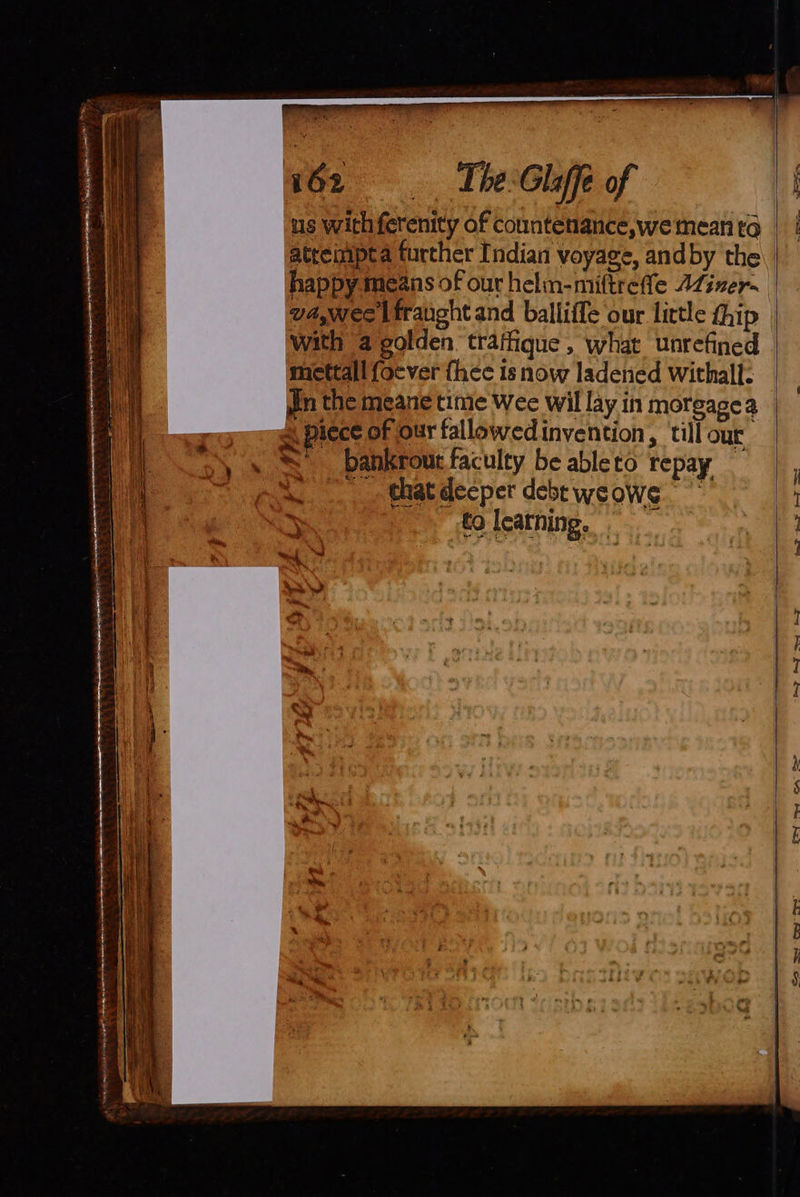 162 The Glasse of
us with serenity of countenance, we mean to
attempt a further Indian voyage, and by the
happy means of our helm-mistresse Miner-
va, wee'l fraught and ballisse our little ship
with a golden traffique, what unrefined
mettall soever shee is now ladened withall.
In the meane time wee wil lay in morgage a
piece of our fallowed invention, till our
bankrout faculty be able to repay
that deeper debt we owe
to learning.